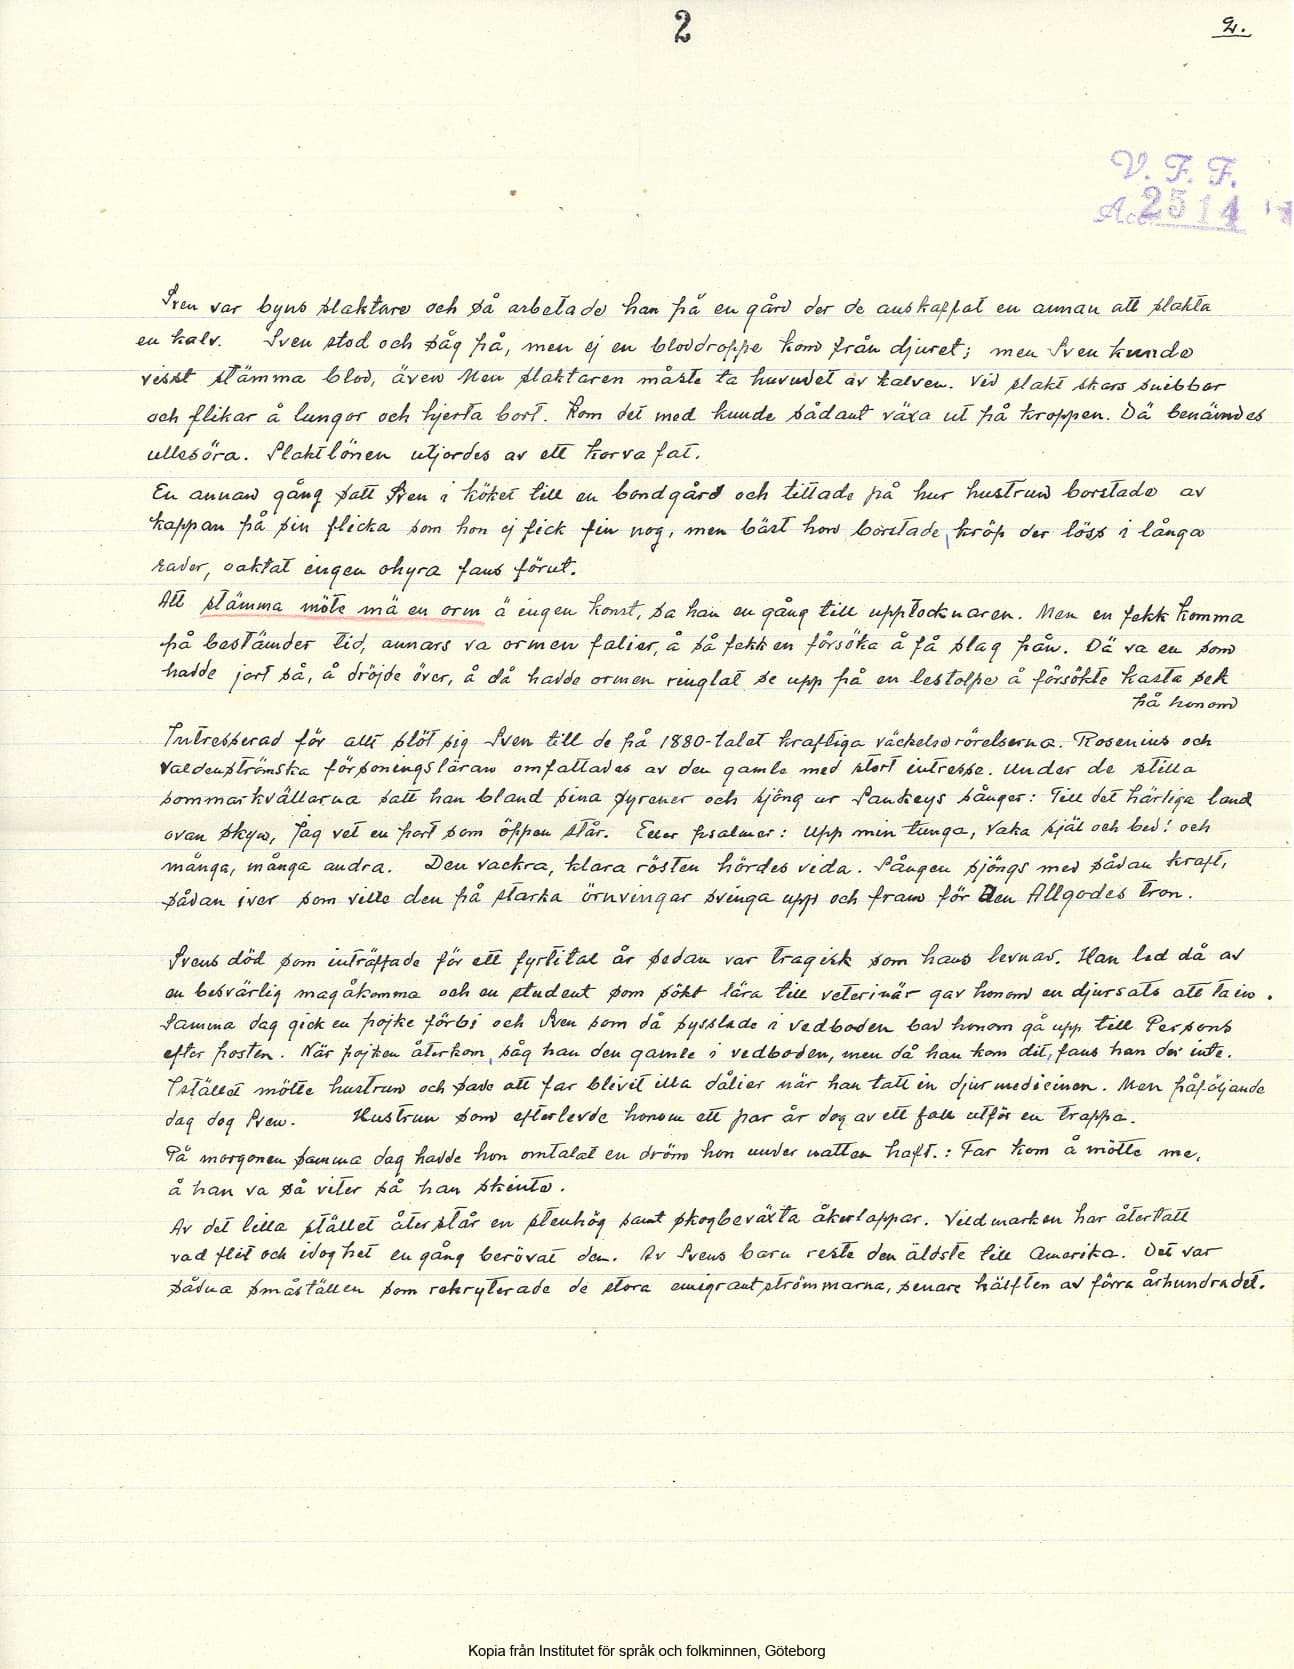 2
2.
V. F. F.
Acc. 2514
Sven var byns slaktare och så arbetade han på en gård der de anskaffat en annan att slakta
en kalv. Sven stod och såg på, men ej en bloddroppe kom från djuret; men Sven kunde
visst stämma blod, även Men slaktaren måste ta huvudet av kalven. Vid slakt skars snibbar
och flikar å lungor och hjerta bort. Kom det med kunde sådant växa ut på kroppen. Dä benämdes
ullesöra. Slaktlönen utjordes av ett korvafat.
En annan gång satt Sven i köket till en bondgård och tittade på hur hustrun borstade av
kappan på sin flicka som hon ej fick fin nog, men bäst hon borstade, kröp der löss i långa
rader, oaktat ingen ohyra fans förut.
Att stämma möte mä en orm ä ingen konst, sa han en gång till upptecknaren. Men en fekk komma
på bestämder tid, annars va ormen falier, å så fekk en försöka å få slag från. Dä va en som
hadde jort så, å dröjde över, å då hadde ormen ringlat se upp på en lestolpe å försökte kasta sek
på honom
Intresserad för allt slöt sig Sven till de på 1880-talet kraftiga väckelserörelserna. Rosenius och
Valdenströmska försoningsläran omfattades av den gamle med stort intresse. Under de stilla
sommarkvällarna satt han bland sina syrener och sjöng ur Sankeys sånger: Till det härliga land
ovan skyn, Jag vet en port som öppen står. Eller psalmer: Upp min tunga, Vaka själ och bed! och
många, många andra. Den vackra, klara rösten hördes vida. Sången sjöngs med sådan kraft,
sådan iver som ville den på starka örnvingar svinga upp och fram för Den Allgodes tron.
Svens död som inträffade för ett fyrtital år sedan var tragisk som hans levnad. Han led då av
en besvärlig magåkomma och en student som sökt lära till veterinär gav honom en djursats att ta in.
Samma dag gick en pojke förbi och Sven som då sysslade i vedboden bad honom gå upp till Persons
efter posten. När pojken återkom, såg han den gamle i vedboden, men då han kom dit, fans han der inte.
Istället mötte hustrun och sade att far blivit illa dålier när han tatt in djurmedicinen. Men påföljande
dag dog Sven. Hustrun som efterlevde honom ett par år dog av ett fall utför en trappa.
På morgonen samma dag hadde hon omtalat en dröm hon under natten haft.: Far kom å mötte me,
å han va så viter så han skinte.
Av det lilla stället återstår en stenhög samt skogbeväxta åkerlappar. Vildmarken har återtatt
vad flit och idoghet en gång berövat den. Av Svens barn reste den äldste till Amerika. Det var
sådna småställen som rekryterade de stora emigrantströmmarna, senare hälften av förra århundradet.
Kopia från Institutet för språk och folkminnen, Göteborg